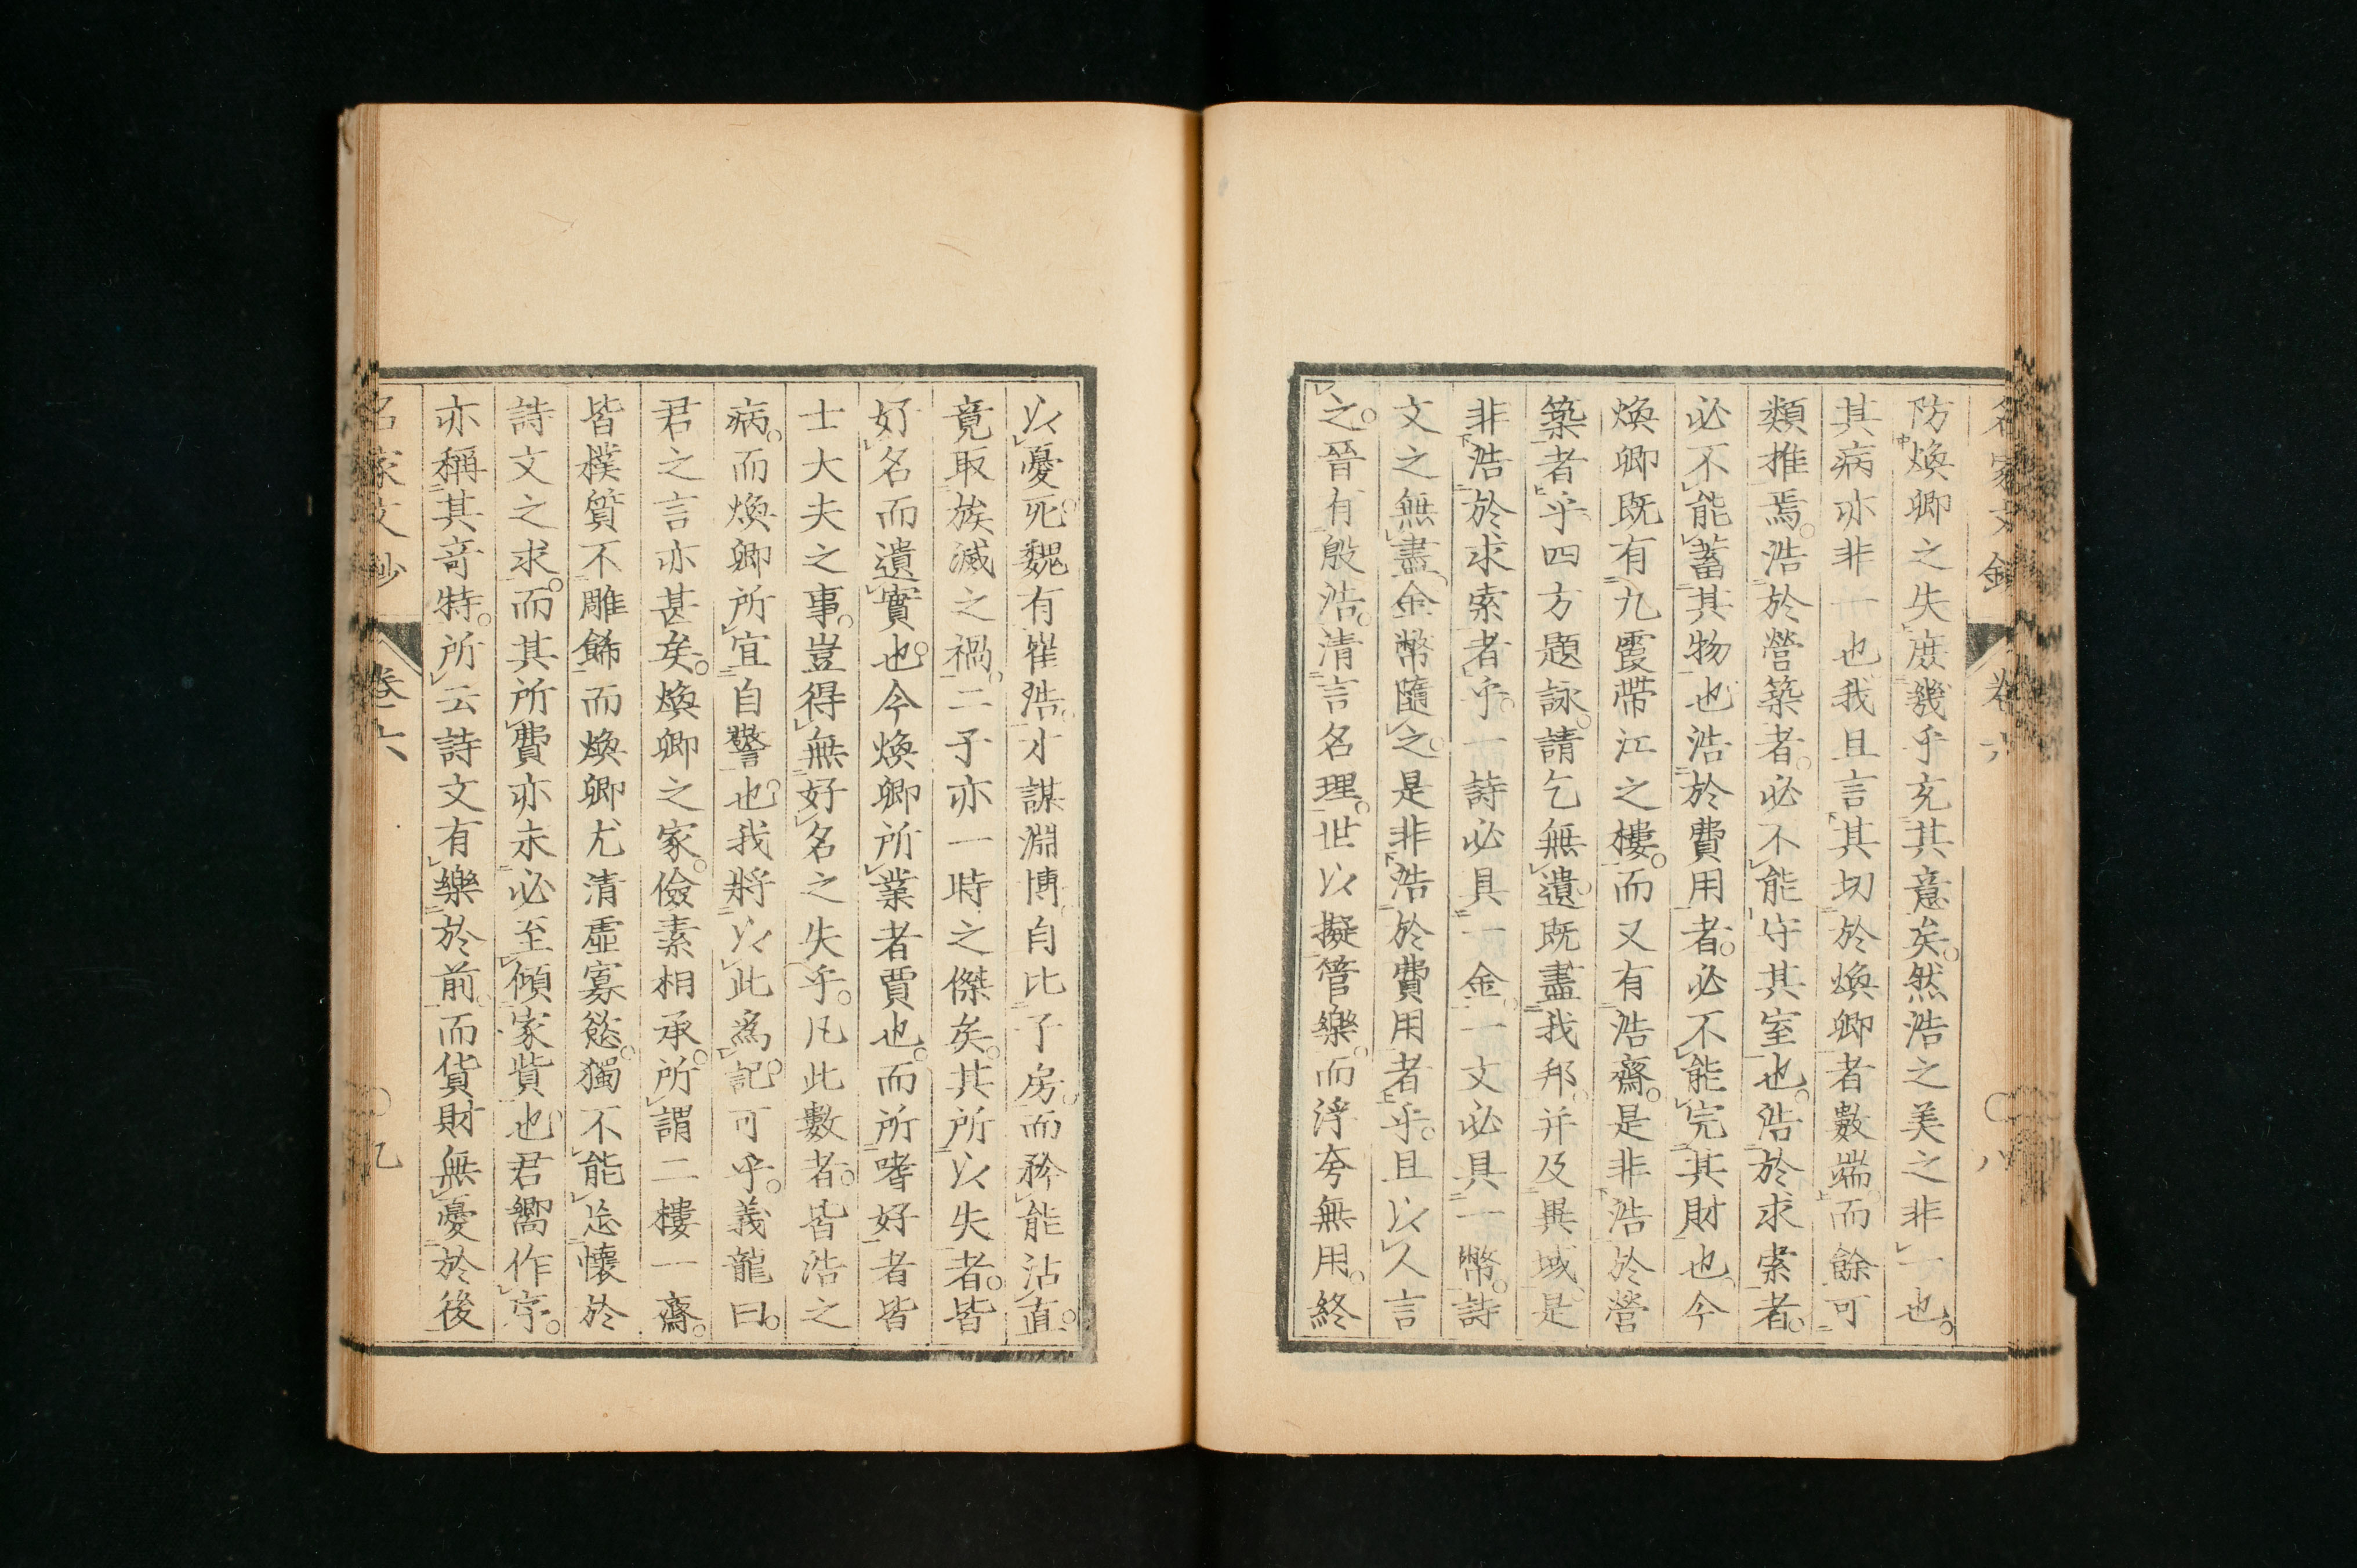 名家文鈔 卷六 〇八
防煥卿之失庶幾乎充其意矣。然浩之美之非一也。
其病亦非一也我且言其切於煥卿者數端而餘可
類推焉。浩於營築者。必不能守其室也。浩於求索者。
必不能蓄其物也浩於費用者。必不能完其財也。今
煥卿既有九霞帶江之樓。而又有浩齋。是非浩於營
築者乎。四方題詠。請乞無遺。既盡我邦。并及異域。是
非浩於求索者乎。一詩必具一金。一文必具一幣。詩
文之無盡。金幣隨之。是非浩於費用者乎。且以人言
之。晉有殷浩。清言名理。世以擬管樂。而浮夸無用。終
以憂死。魏有崔浩。才謀淵博。自比子房。而矜能沽直。
竟取族滅之禍。二子亦一時之傑矣。其所以失者。皆
好名而遺實也。今煥卿所業者賈也。而所嗜好者皆
士大夫之事。豈得無好名之失乎。凡此數者。皆浩之
病。而煥卿所宜自警也。我將以此為記。可乎。義龍曰。
君之言亦甚矣。煥卿之家。儉素相承。所謂二樓一齋。
皆樸質不雕飾而煥卿尤清虛寡慾。獨不能忘懷於
詩文之求。而其所費亦未必至傾家貲也。君嚮作序。
亦稱其奇特。所云詩文有樂於前。而貨財無憂於後
名家文鈔 卷六 〇九